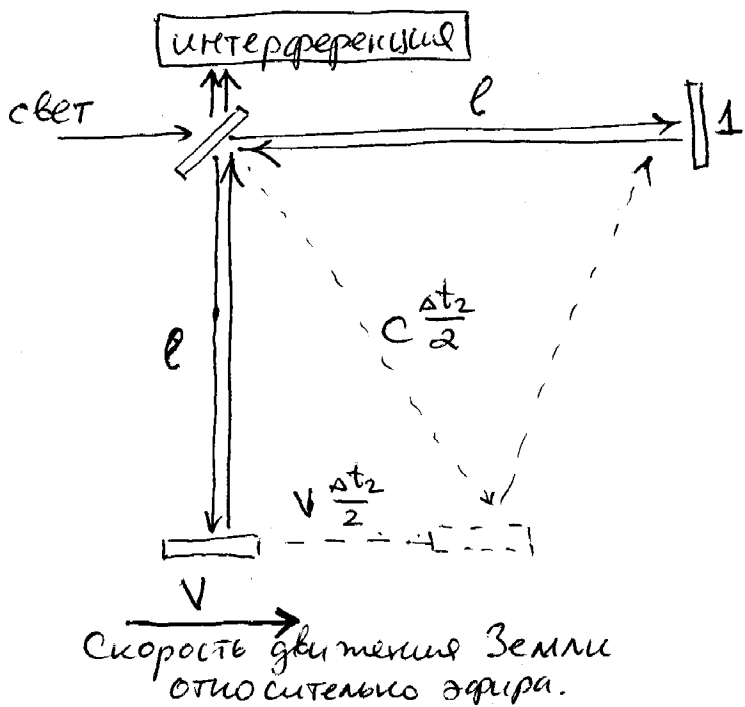 интерференция
свет
l
1
l
C Δt₂/2
V Δt₂/2
V
Скорость движения Земли
относительно эфира.